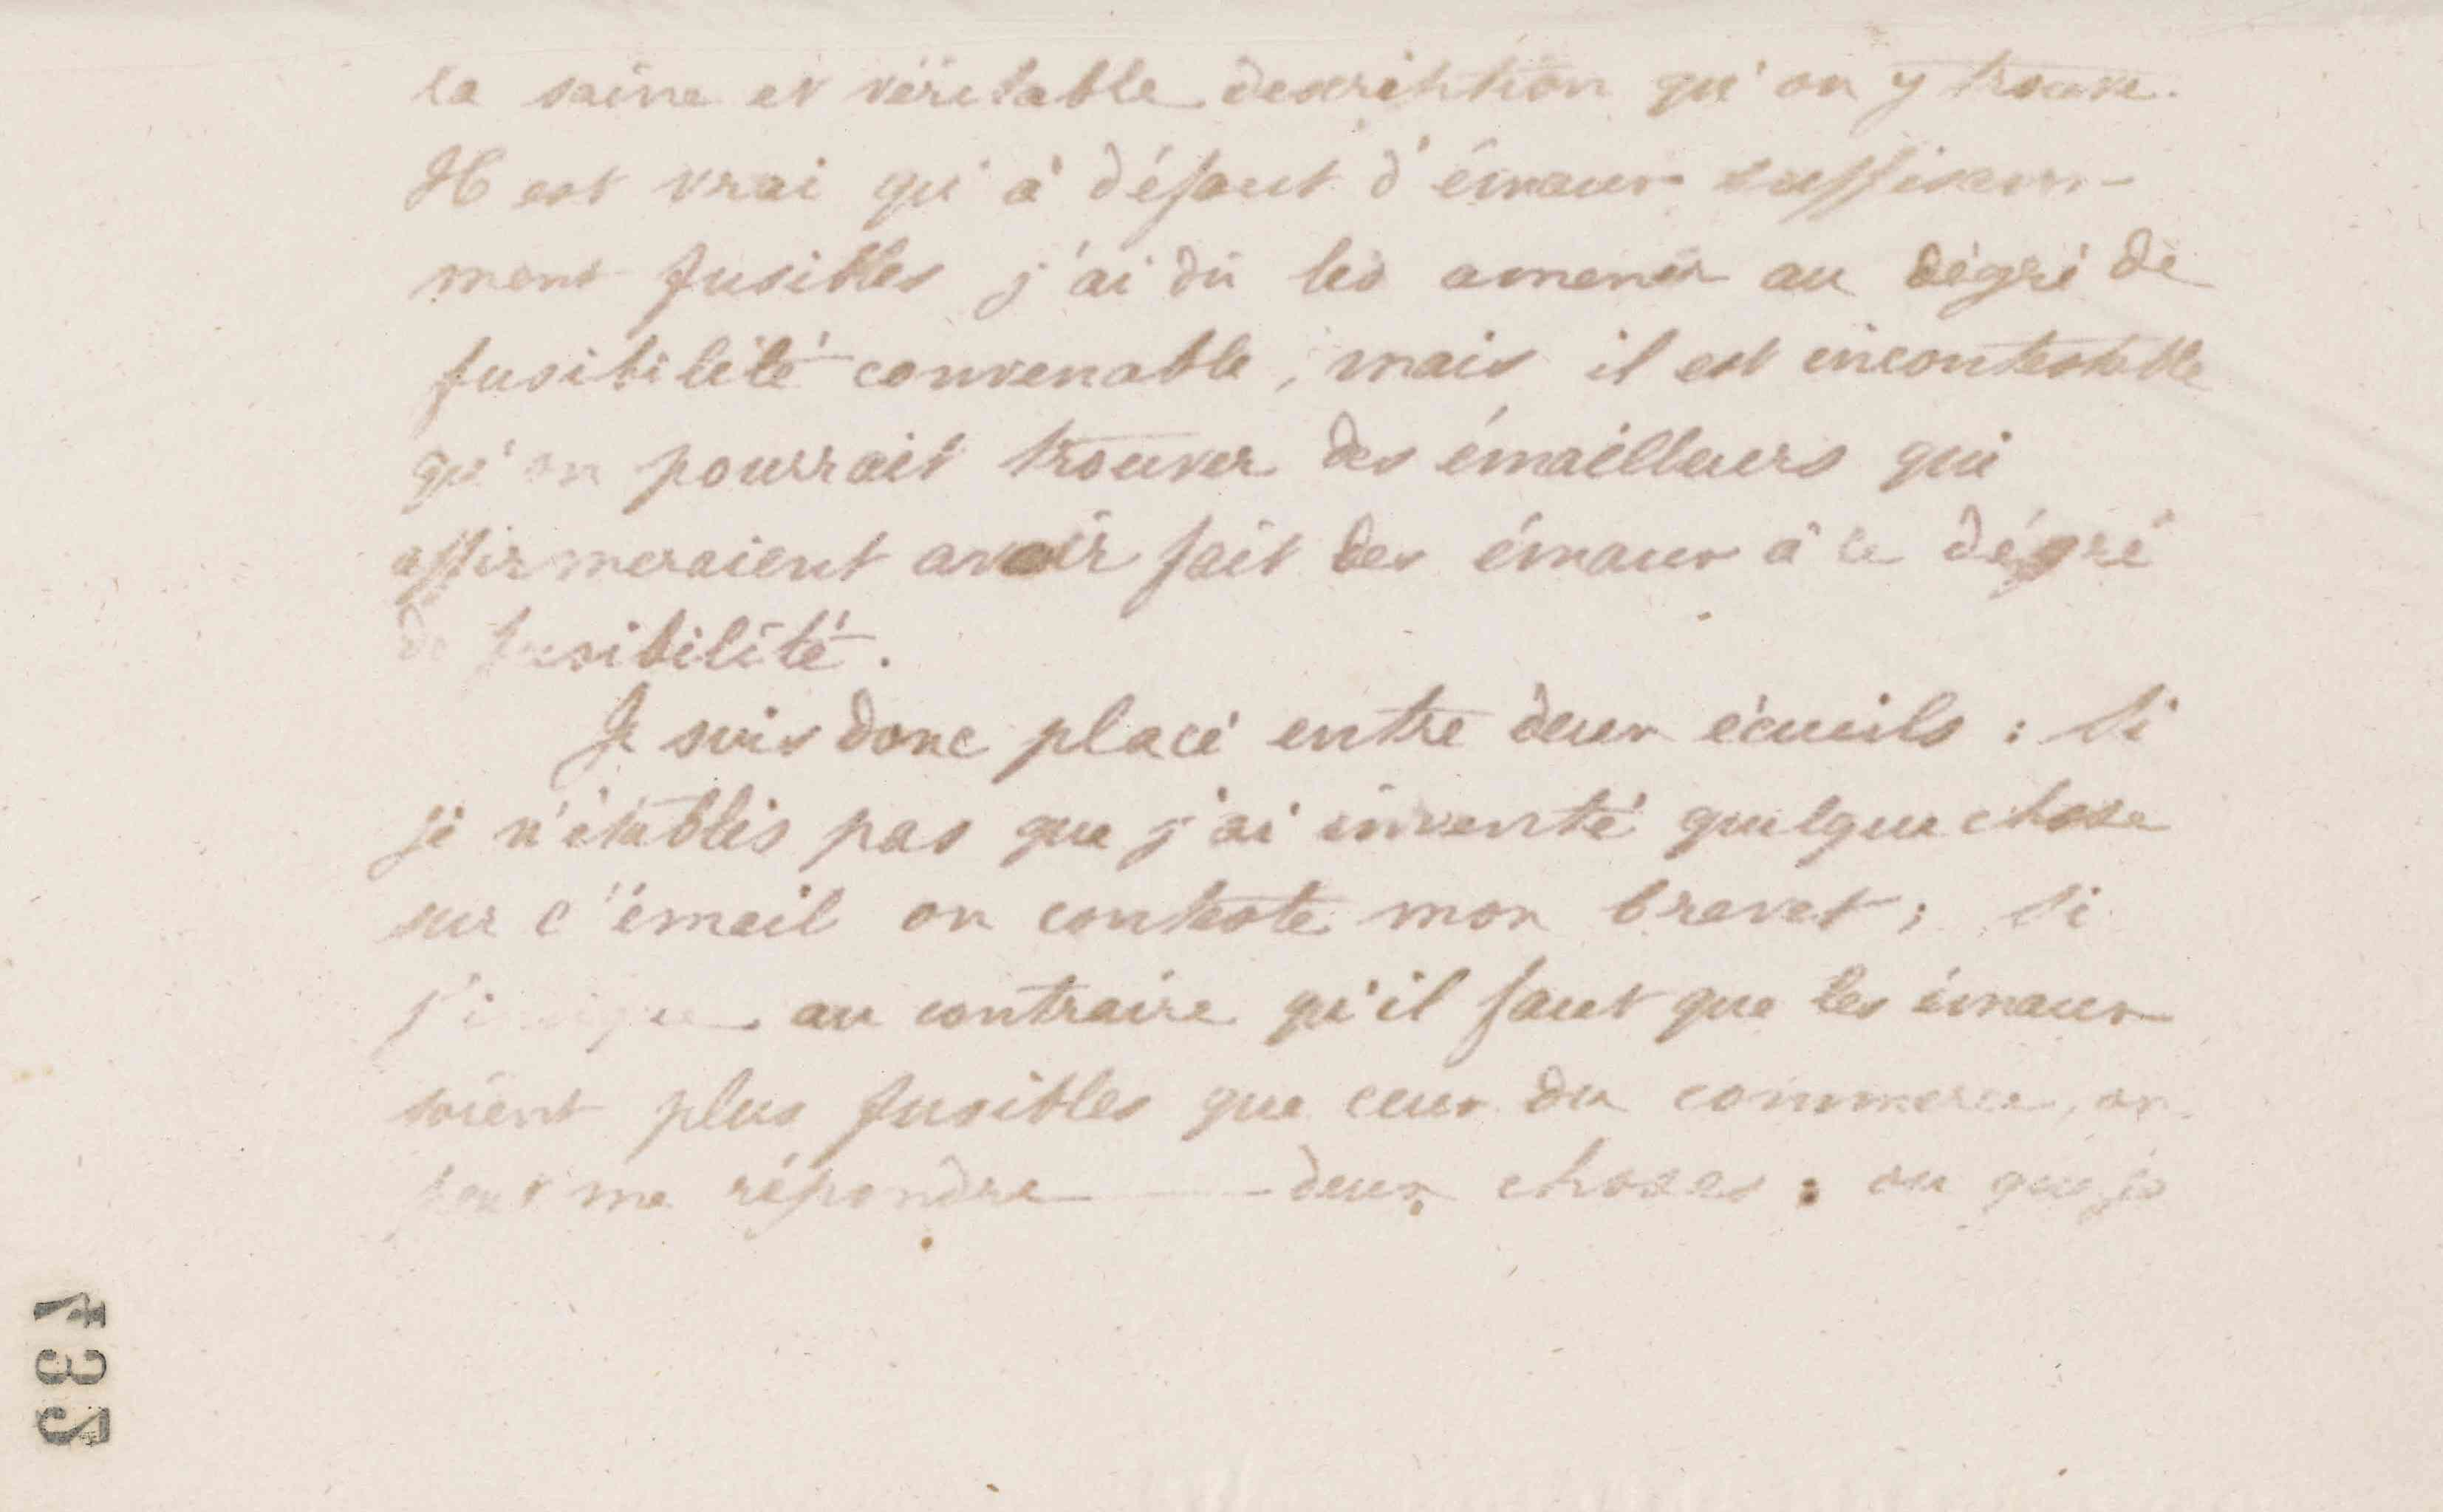 la saine et véritable description qu'on y trouve.
Il est vrai qu'à défaut d'émaux suffisam-
ment fusibles j'ai dû les amener au dégré de
fusibilité convenable, mais il est incontestable
qu'on pourrait trouver des émailleurs qui
affirmeraient avoir fait des émaux à ce dégré
de fusibilité.
Je suis donc placé entre deux écueils : Si
je n'établis pas que j'ai inventé quelque chose
sur l'émail on conteste mon brevet; Si
au contraire qu'il faut que les émaux
soient plus fusibles que ceux du commerce, on
peut me répondre deux choses : ou que je